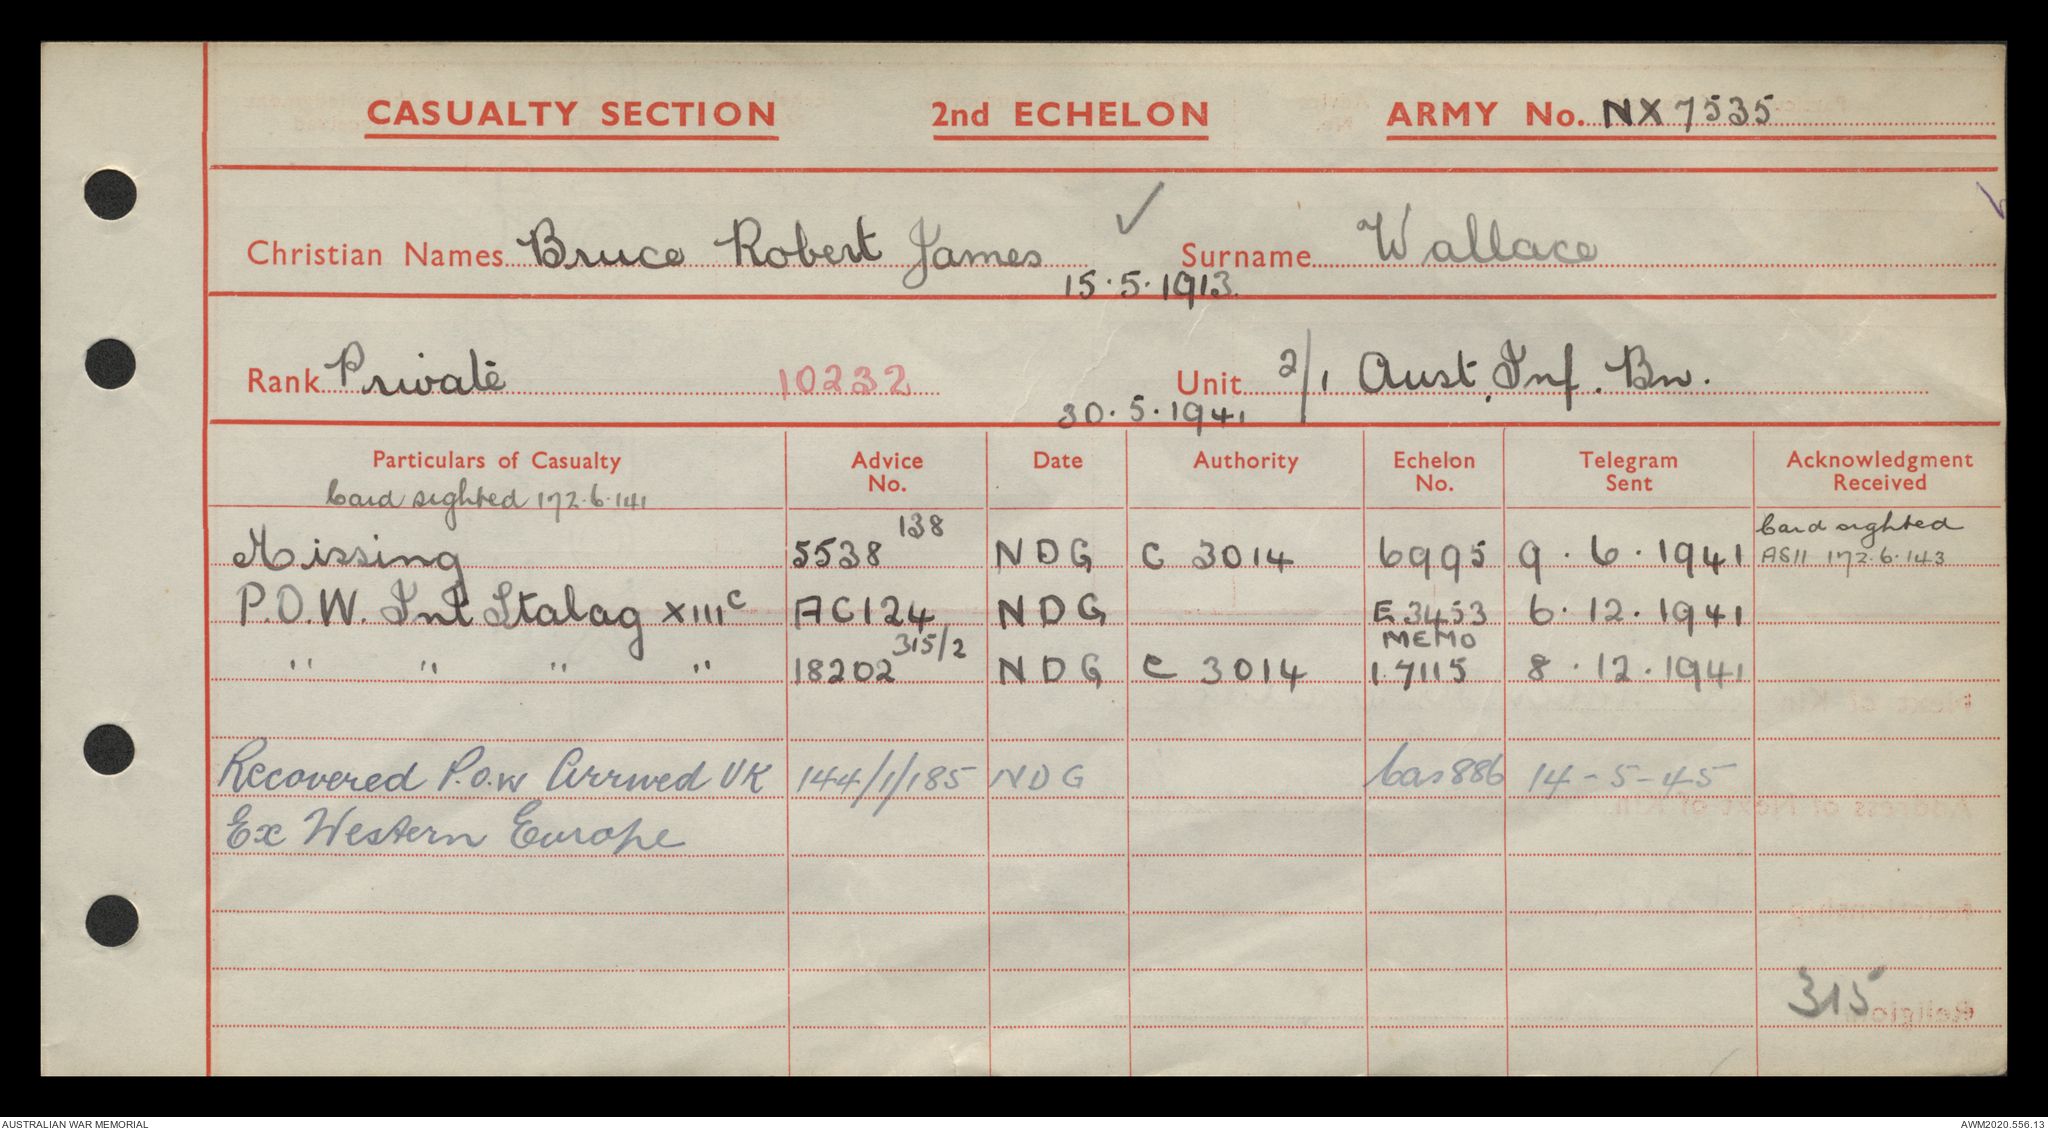 CASUALTY SECTION 2nd ECHELON ARMY No. NX7535
Christian Names Bruce Robert James Surname Wallace
15.5.1913.
Rank Private 10232 Unit 2/1 Aust. Inf. Bn.
30.5.1941
Particulars of Casualty Advice No. Date Authority Echelon No. Telegram Sent Acknowledgment Received
Card sighted 172.6.141
138 Card sighted
Missing 5538 NDG C 3014 6995 9.6.1941 AS11 172.6.143
P.O.W. Int Stalag XIIIC AC124 NDG E3453 6.12.1941
315/2 MEMO
" " " " 18202 NDG C 3014 17115 8.12.1941
Recovered P.O.W Arrived UK 144/1/185 NDG Cas886 14-5-45
Ex Western Europe
315
AUSTRALIAN WAR MEMORIAL AWM2020.556.13